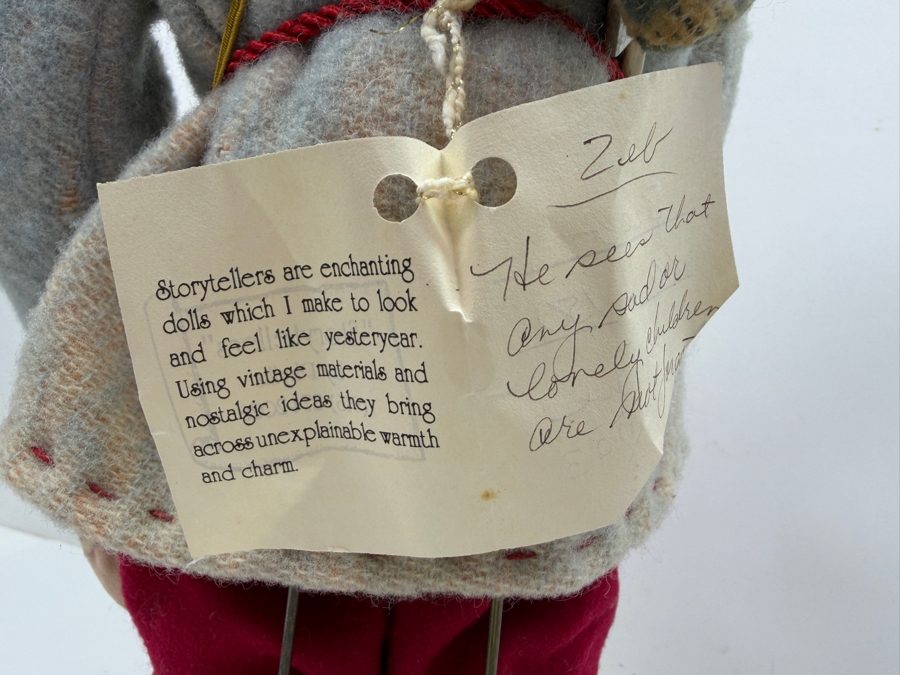 Storytellers are enchanting
dolls which I make to look
and feel like yesteryear.
Using vintage materials and
nostalgic ideas they bring
across unexplainable warmth
and charm.
Zeb
He sees that
any sad or
lonely children
are